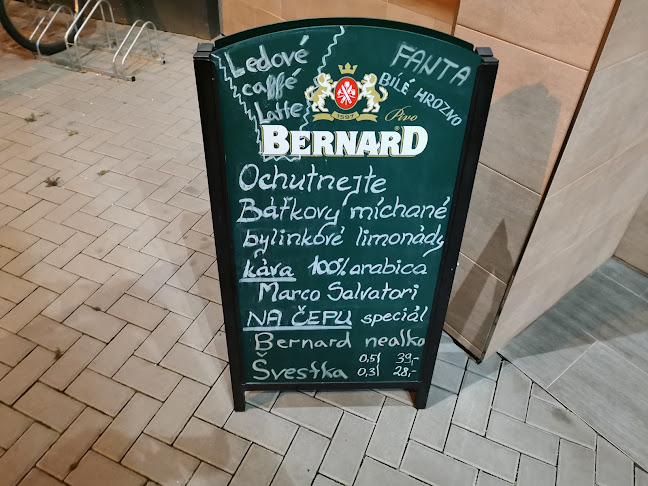 Ledové
caffé
Latte
FANTA
BILÉ HROZNO
1597
Pivo
BERNARD
Ochutnejte
Bářkovy míchané
bylinkové limonády
káva 100% arabica
Marco Salvatori
NA ČEPU speciál
Bernard nealko
Švestka 0,5l 39,-
0,3l 28,-